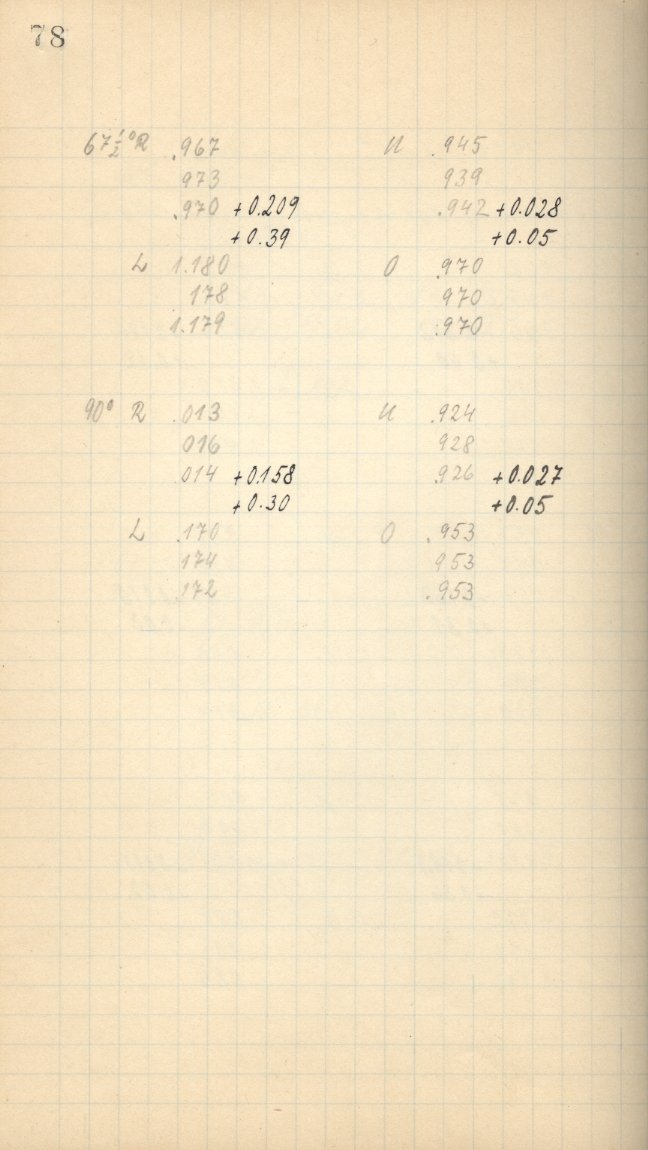 78
67½° R .967 U .945
973 939
.970 +0.209 .942 +0.028
+0.39 +0.05
L 1.180 O .970
178 970
1.179 .970
90° R .013 U .924
016 928
.014 +0.158 .926 +0.027
+0.30 +0.05
L .170 O .953
174 953
.172 .953